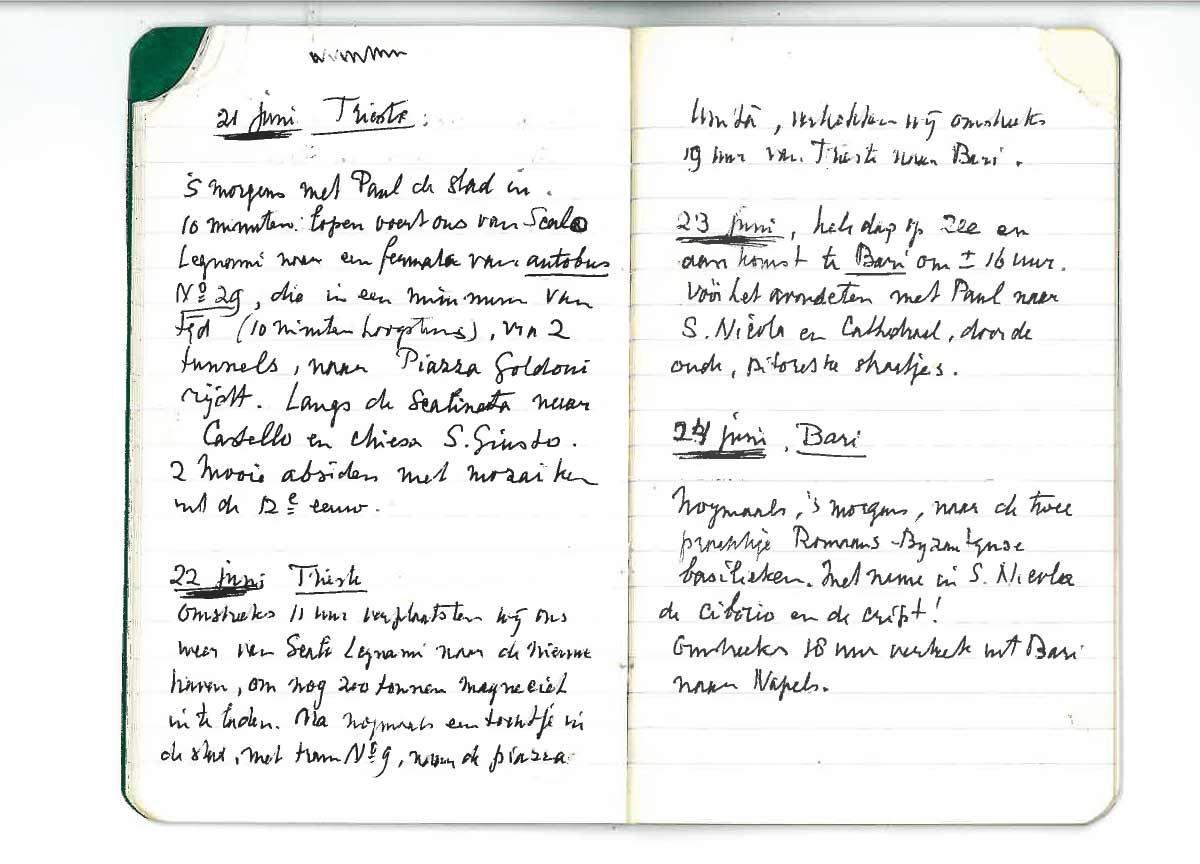 21 juni Trieste:
's morgens met Paul de stad in.
10 minuten lopen voert ons van Scalo
Legnami naar een fermata van autobus
Nº 29, die in een minimum van
tijd (10 minuten hoogstens), via 2
tunnels, naar Piazza Goldoni
rijdt. Langs de Scalinata naar
Castello en chiesa S. Giusto.
2 Mooie absiden met mozaiken
uit de 12e eeuw.
22 juni Trieste
Omstreeks 11 uur verplaatsten wij ons
weer van Scalo Legnami naar de nieuwe
haven, om nog 200 tonnen magnesiet
in te laden. Na nogmaals een tochtje in
de stad, met tram Nº 9, naar de piazza
Unità, vertrekken wij omstreeks
19 uur van Trieste naar Bari.
23 juni, hele dag op zee en
aankomst te Bari om ± 16 uur.
Vóór het avondeten met Paul naar
S. Nicola en Cathedraal, door de
oude, pitoreske straatjes.
24 juni, Bari
Nogmaals, 's morgens, naar de twee
prachtige Romaans-Byzantijnse
basilieken. Met name in S. Nicola
de ciborio en de cript!
Omstreeks 18 uur vertrek uit Bari
naar Napels.